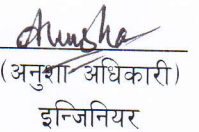 Anusha
(अनुशा अधिकारी)
इन्जिनियर